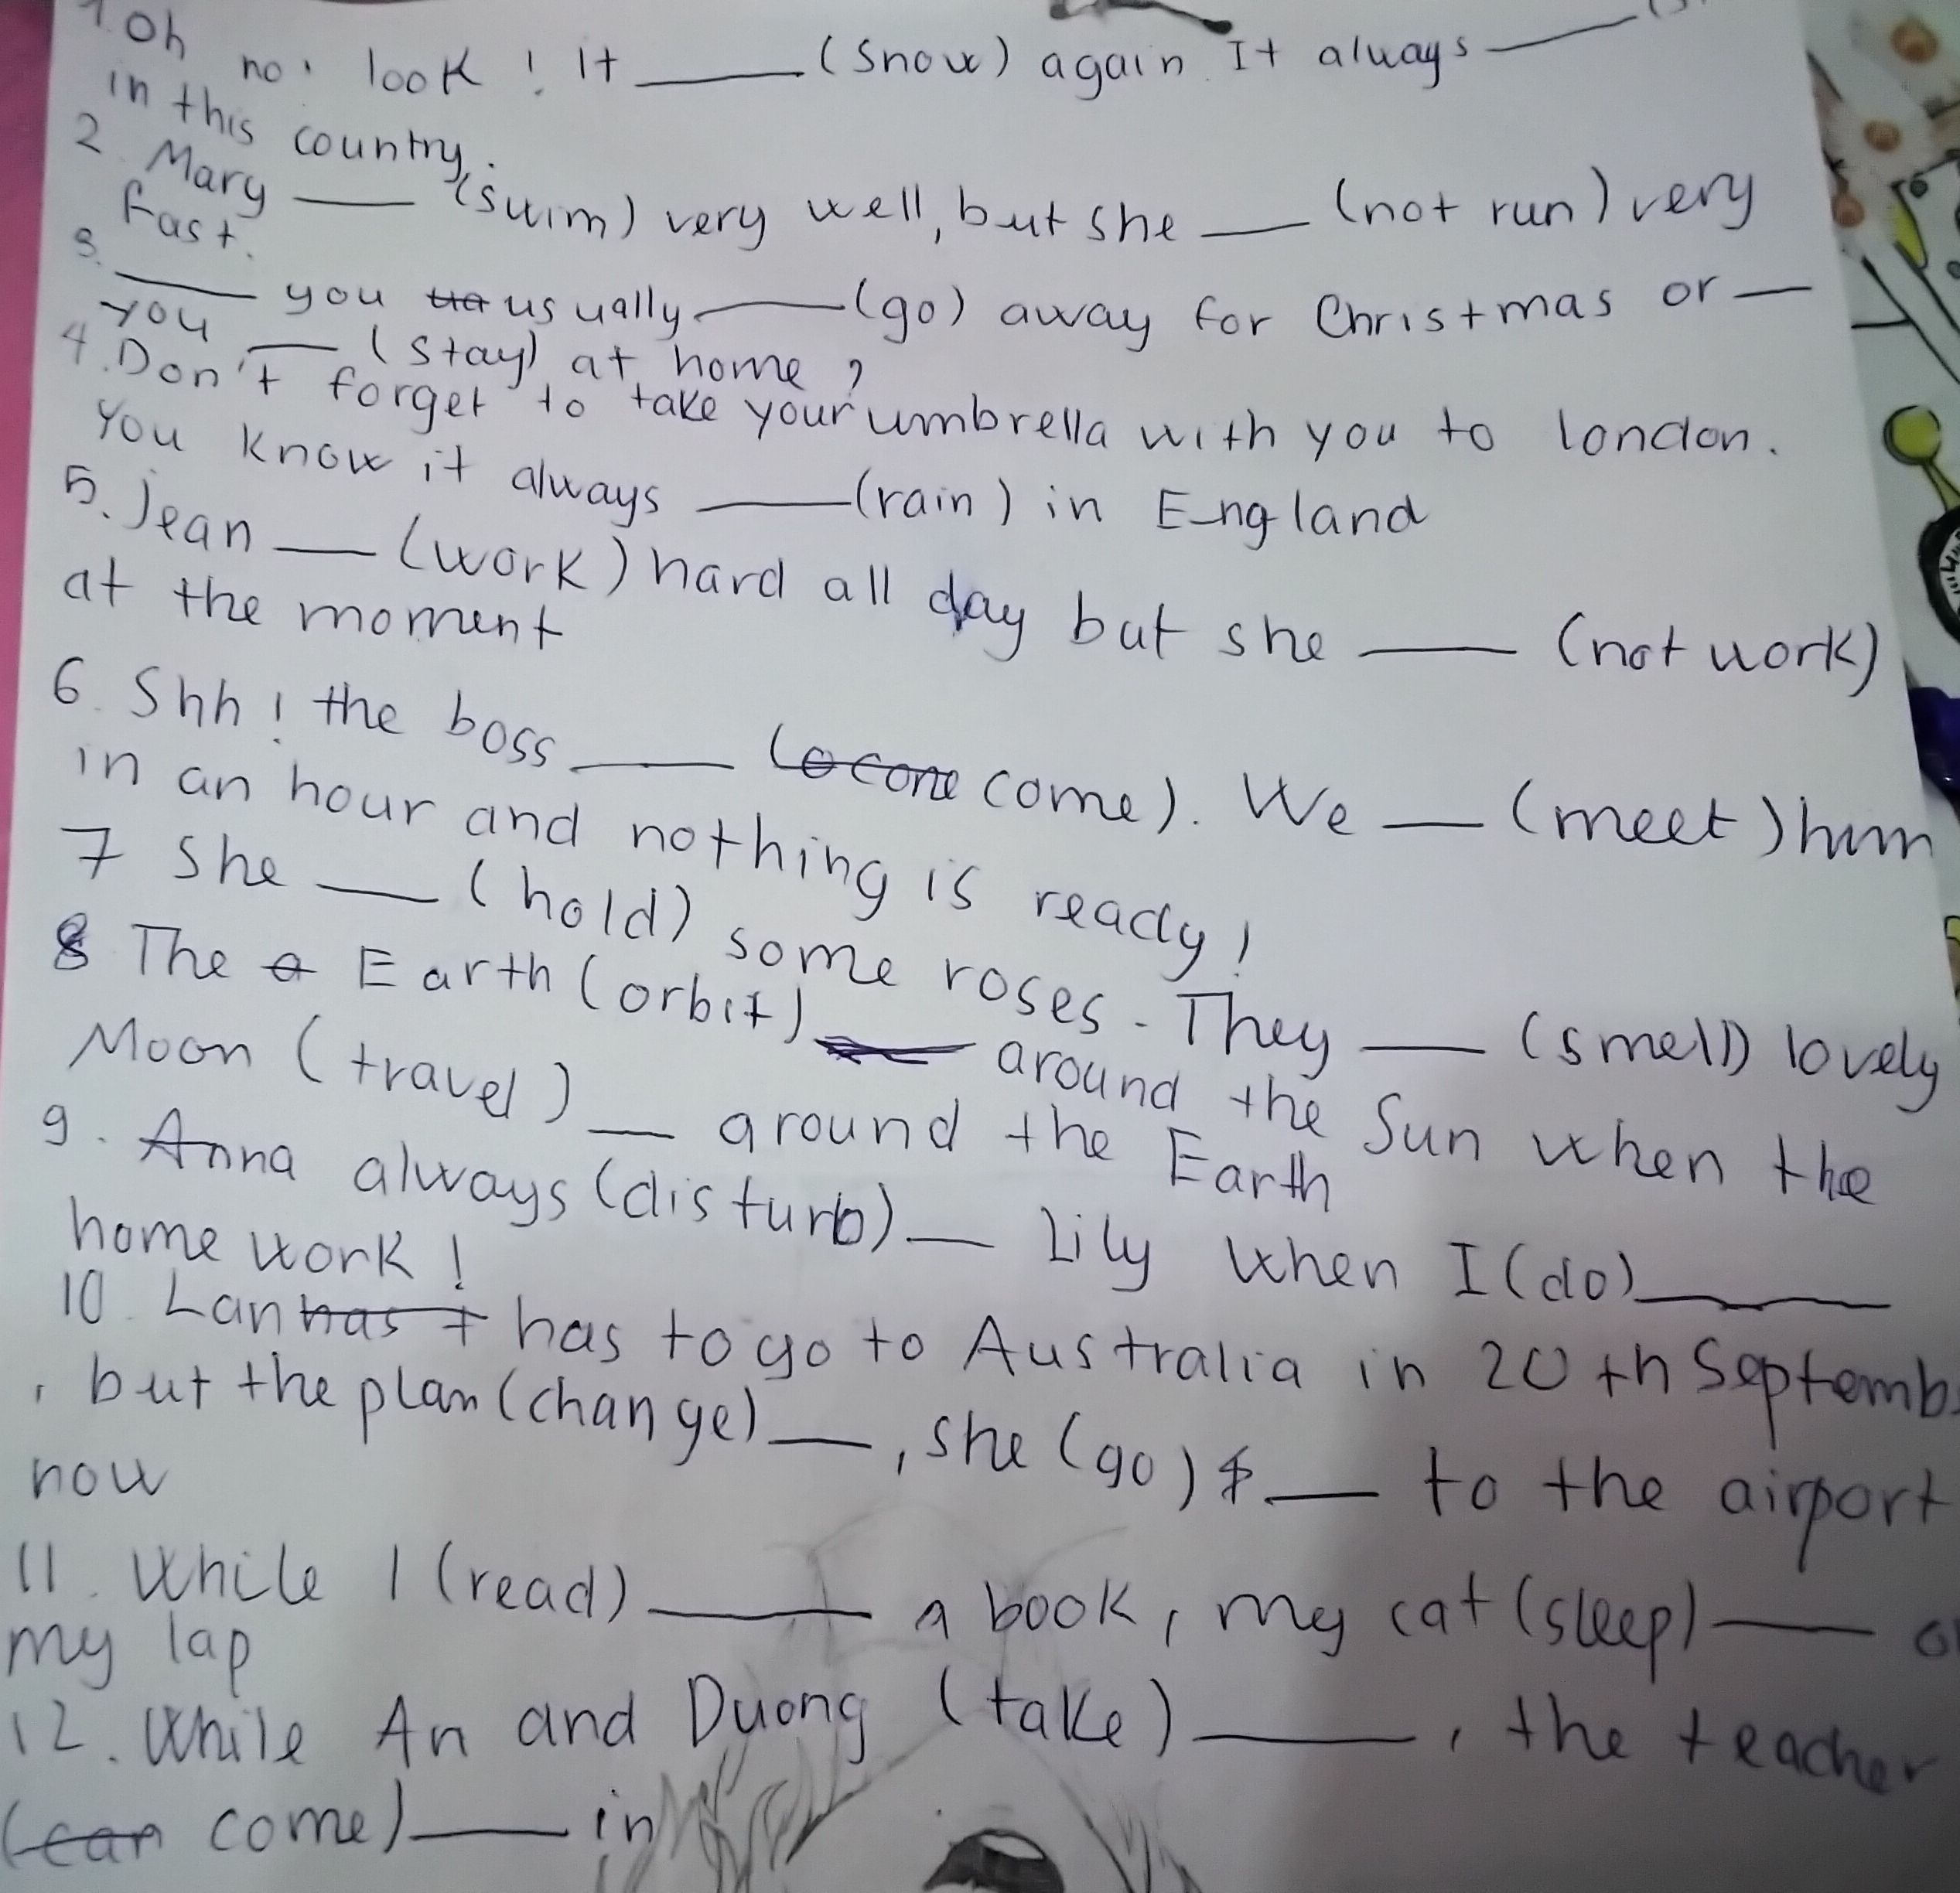 1. Oh no! look! It ____ (snow) again. It always ____
in this country.
2. Mary ____ (swim) very well, but she ____ (not run) very
fast.
3. ____ you usually ____ (go) away for Christmas or ____
you ____ (stay) at home?
4. Don't forget to take your umbrella with you to london.
You know it always ____ (rain) in England
5. Jean ____ (work) hard all day but she ____ (not work)
at the moment
6. Shh! the boss ____ (come). We ____ (meet) him
in an hour and nothing is ready!
7 She ____ (hold) some roses. They ____ (smell) lovely
8 The Earth (orbit) ____ around the Sun when the
Moon (travel) ____ around the Earth
9. Anna always (disturb) ____ Lily when I (do) ____
home work!
10. Lan has to go to Australia in 20th Septemb
, but the plan (change) ____, she (go) ____ to the airport
now
11. While I (read) ____ a book, my cat (sleep) ____
my lap
12. While An and Duong (take) ____, the teacher
(come) ____ in